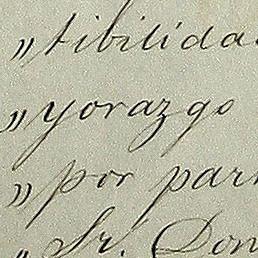 „tibilida
„yorazgo
„por par
„Sr. Don